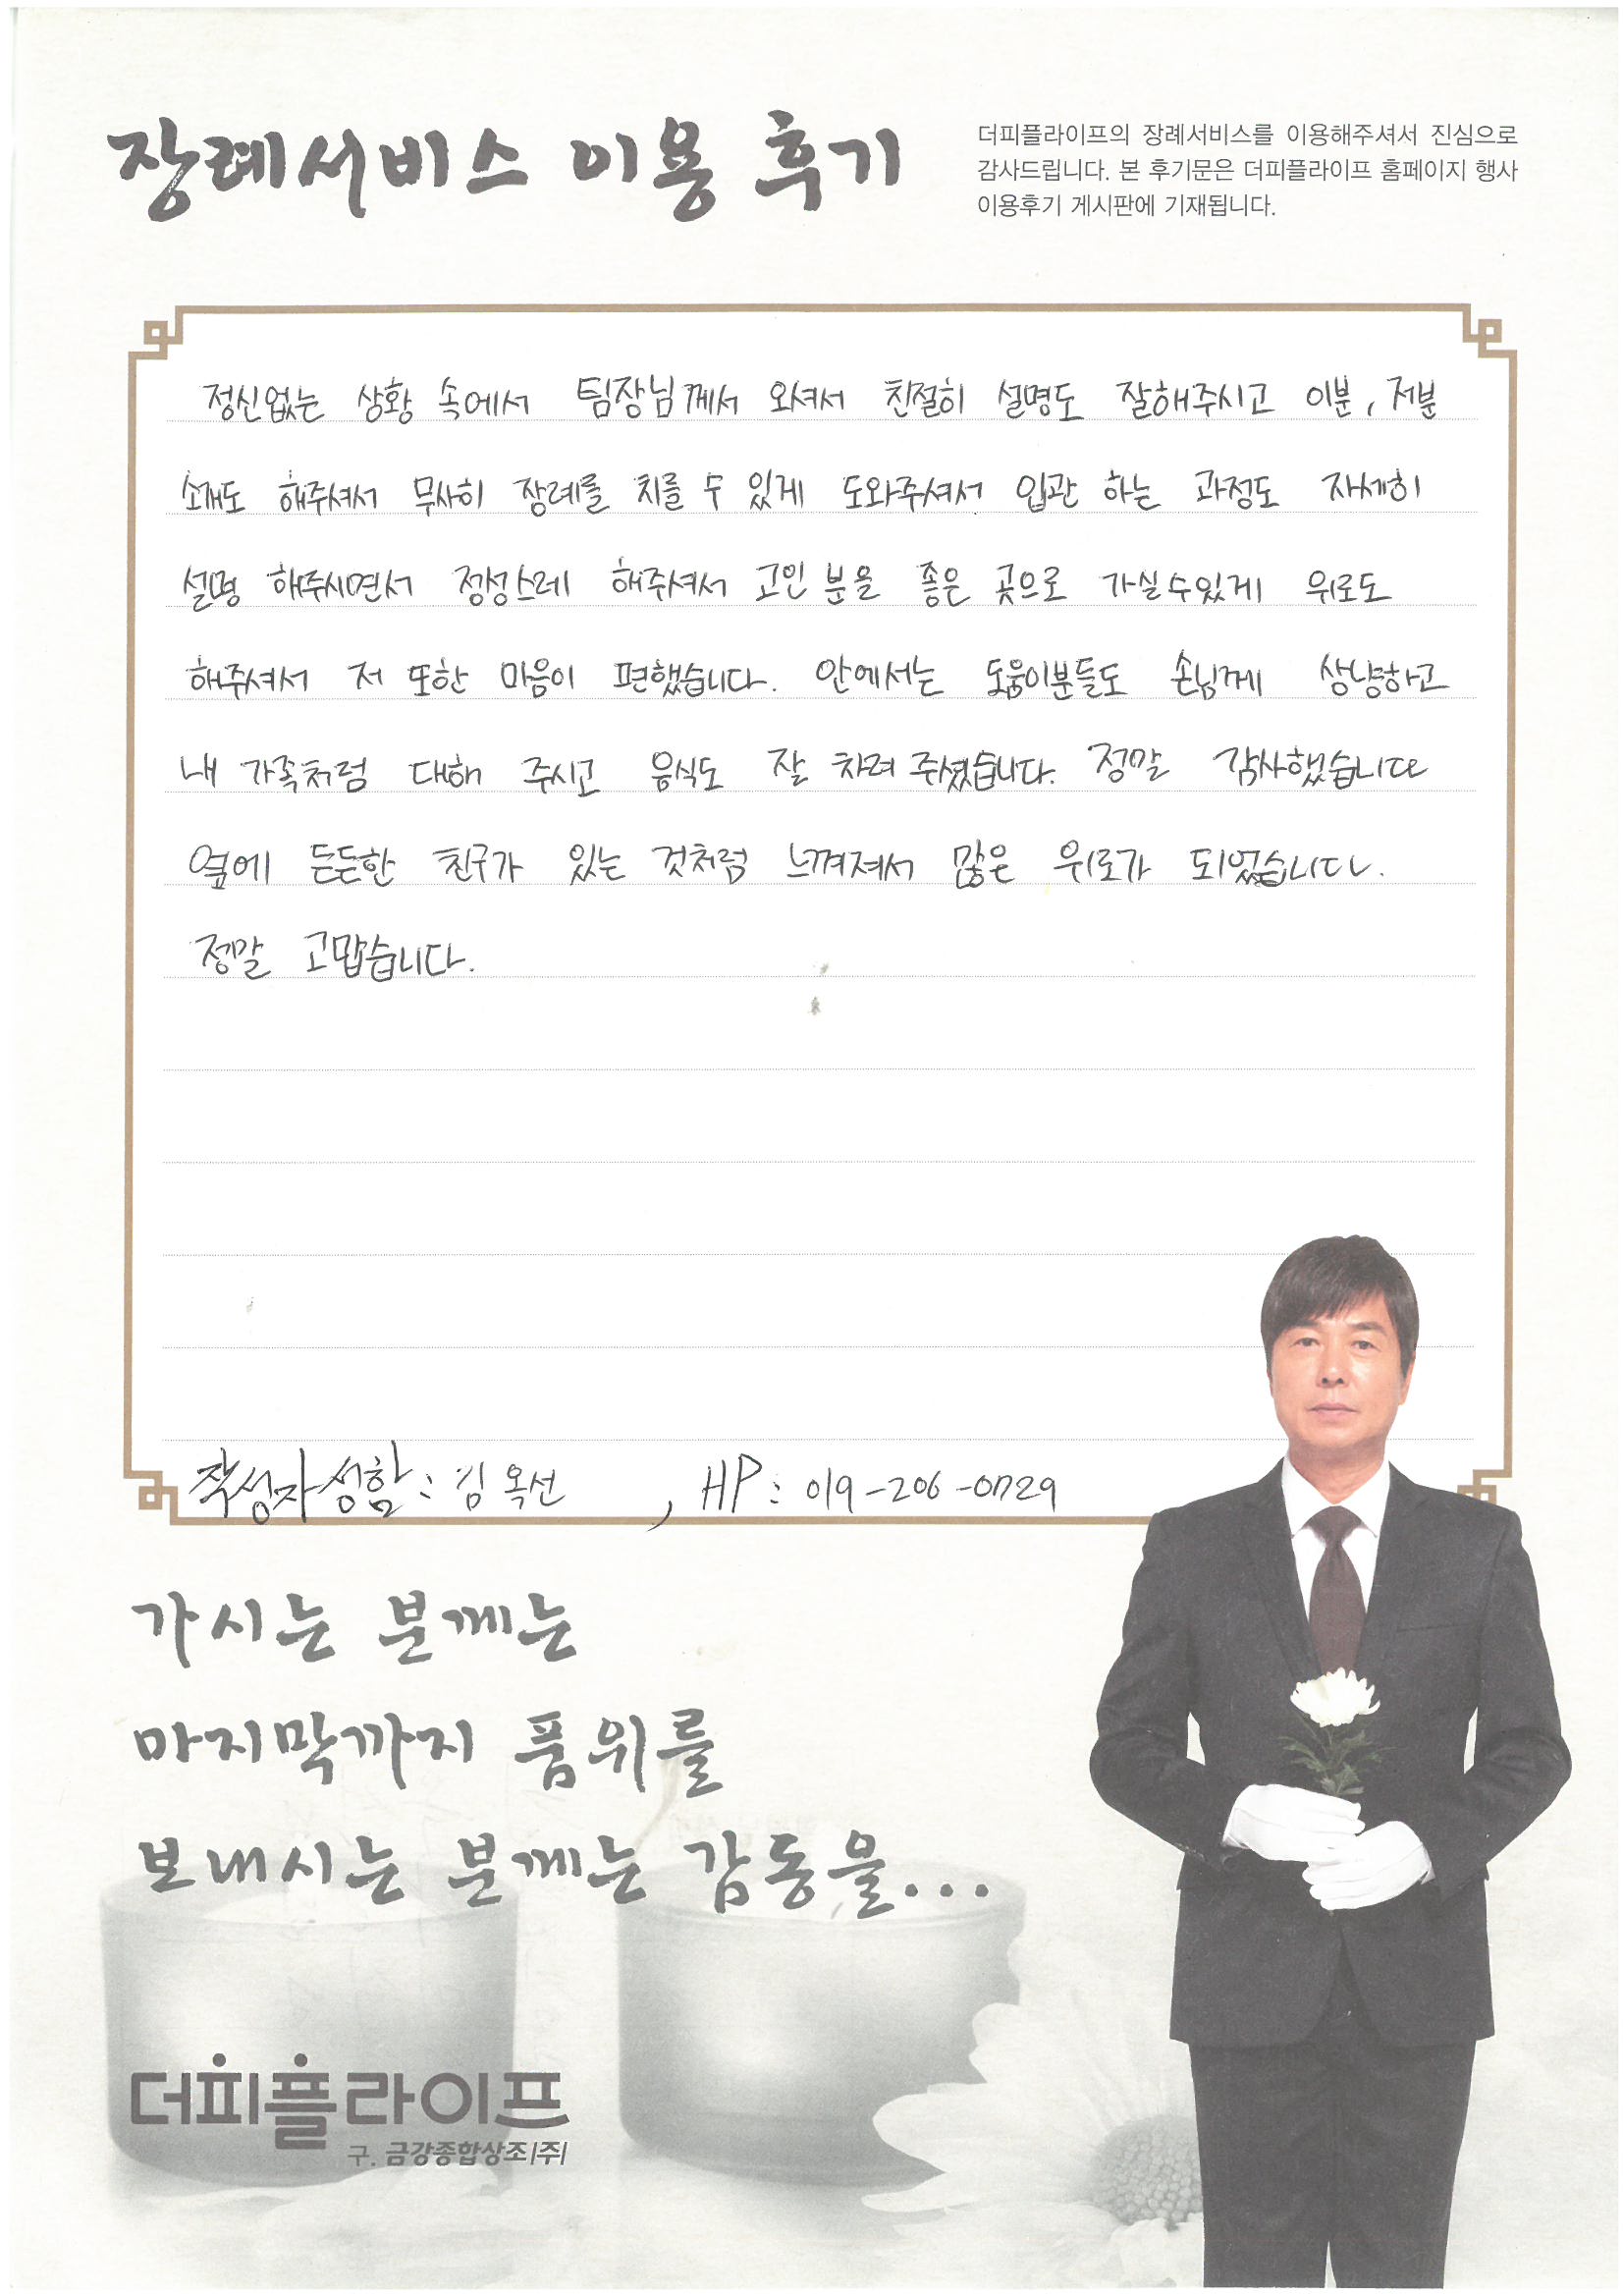 장례서비스 이용 후기
더피플라이프의 장례서비스를 이용해주셔서 진심으로
감사드립니다. 본 후기문은 더피플라이프 홈페이지 행사
이용후기 게시판에 기재됩니다.
정신없는 상황 속에서 팀장님께서 오셔서 친절히 설명도 잘해주시고 이분, 저분
소개도 해주셔서 무사히 장례를 치를 수 있게 도와주셔서 입관 하는 과정도 자세히
설명 해주시면서 정성스레 해주셔서 고인 분을 좋은 곳으로 가실수있게 위로도
해주셔서 저 또한 마음이 편했습니다. 안에서는 도움이분들도 손님께 상냥하고
내 가족처럼 대해 주시고 음식도 잘 차려 주셨습니다. 정말 감사했습니다
옆에 든든한 친구가 있는 것처럼 느껴져서 많은 위로가 되었습니다.
정말 고맙습니다.
작성자성함 : 김옥선 , HP : 019-206-0729
가시는 분께는
마지막까지 품위를
보내시는 분께는 감동을...
더피플라이프
구. 금강종합상조|주|